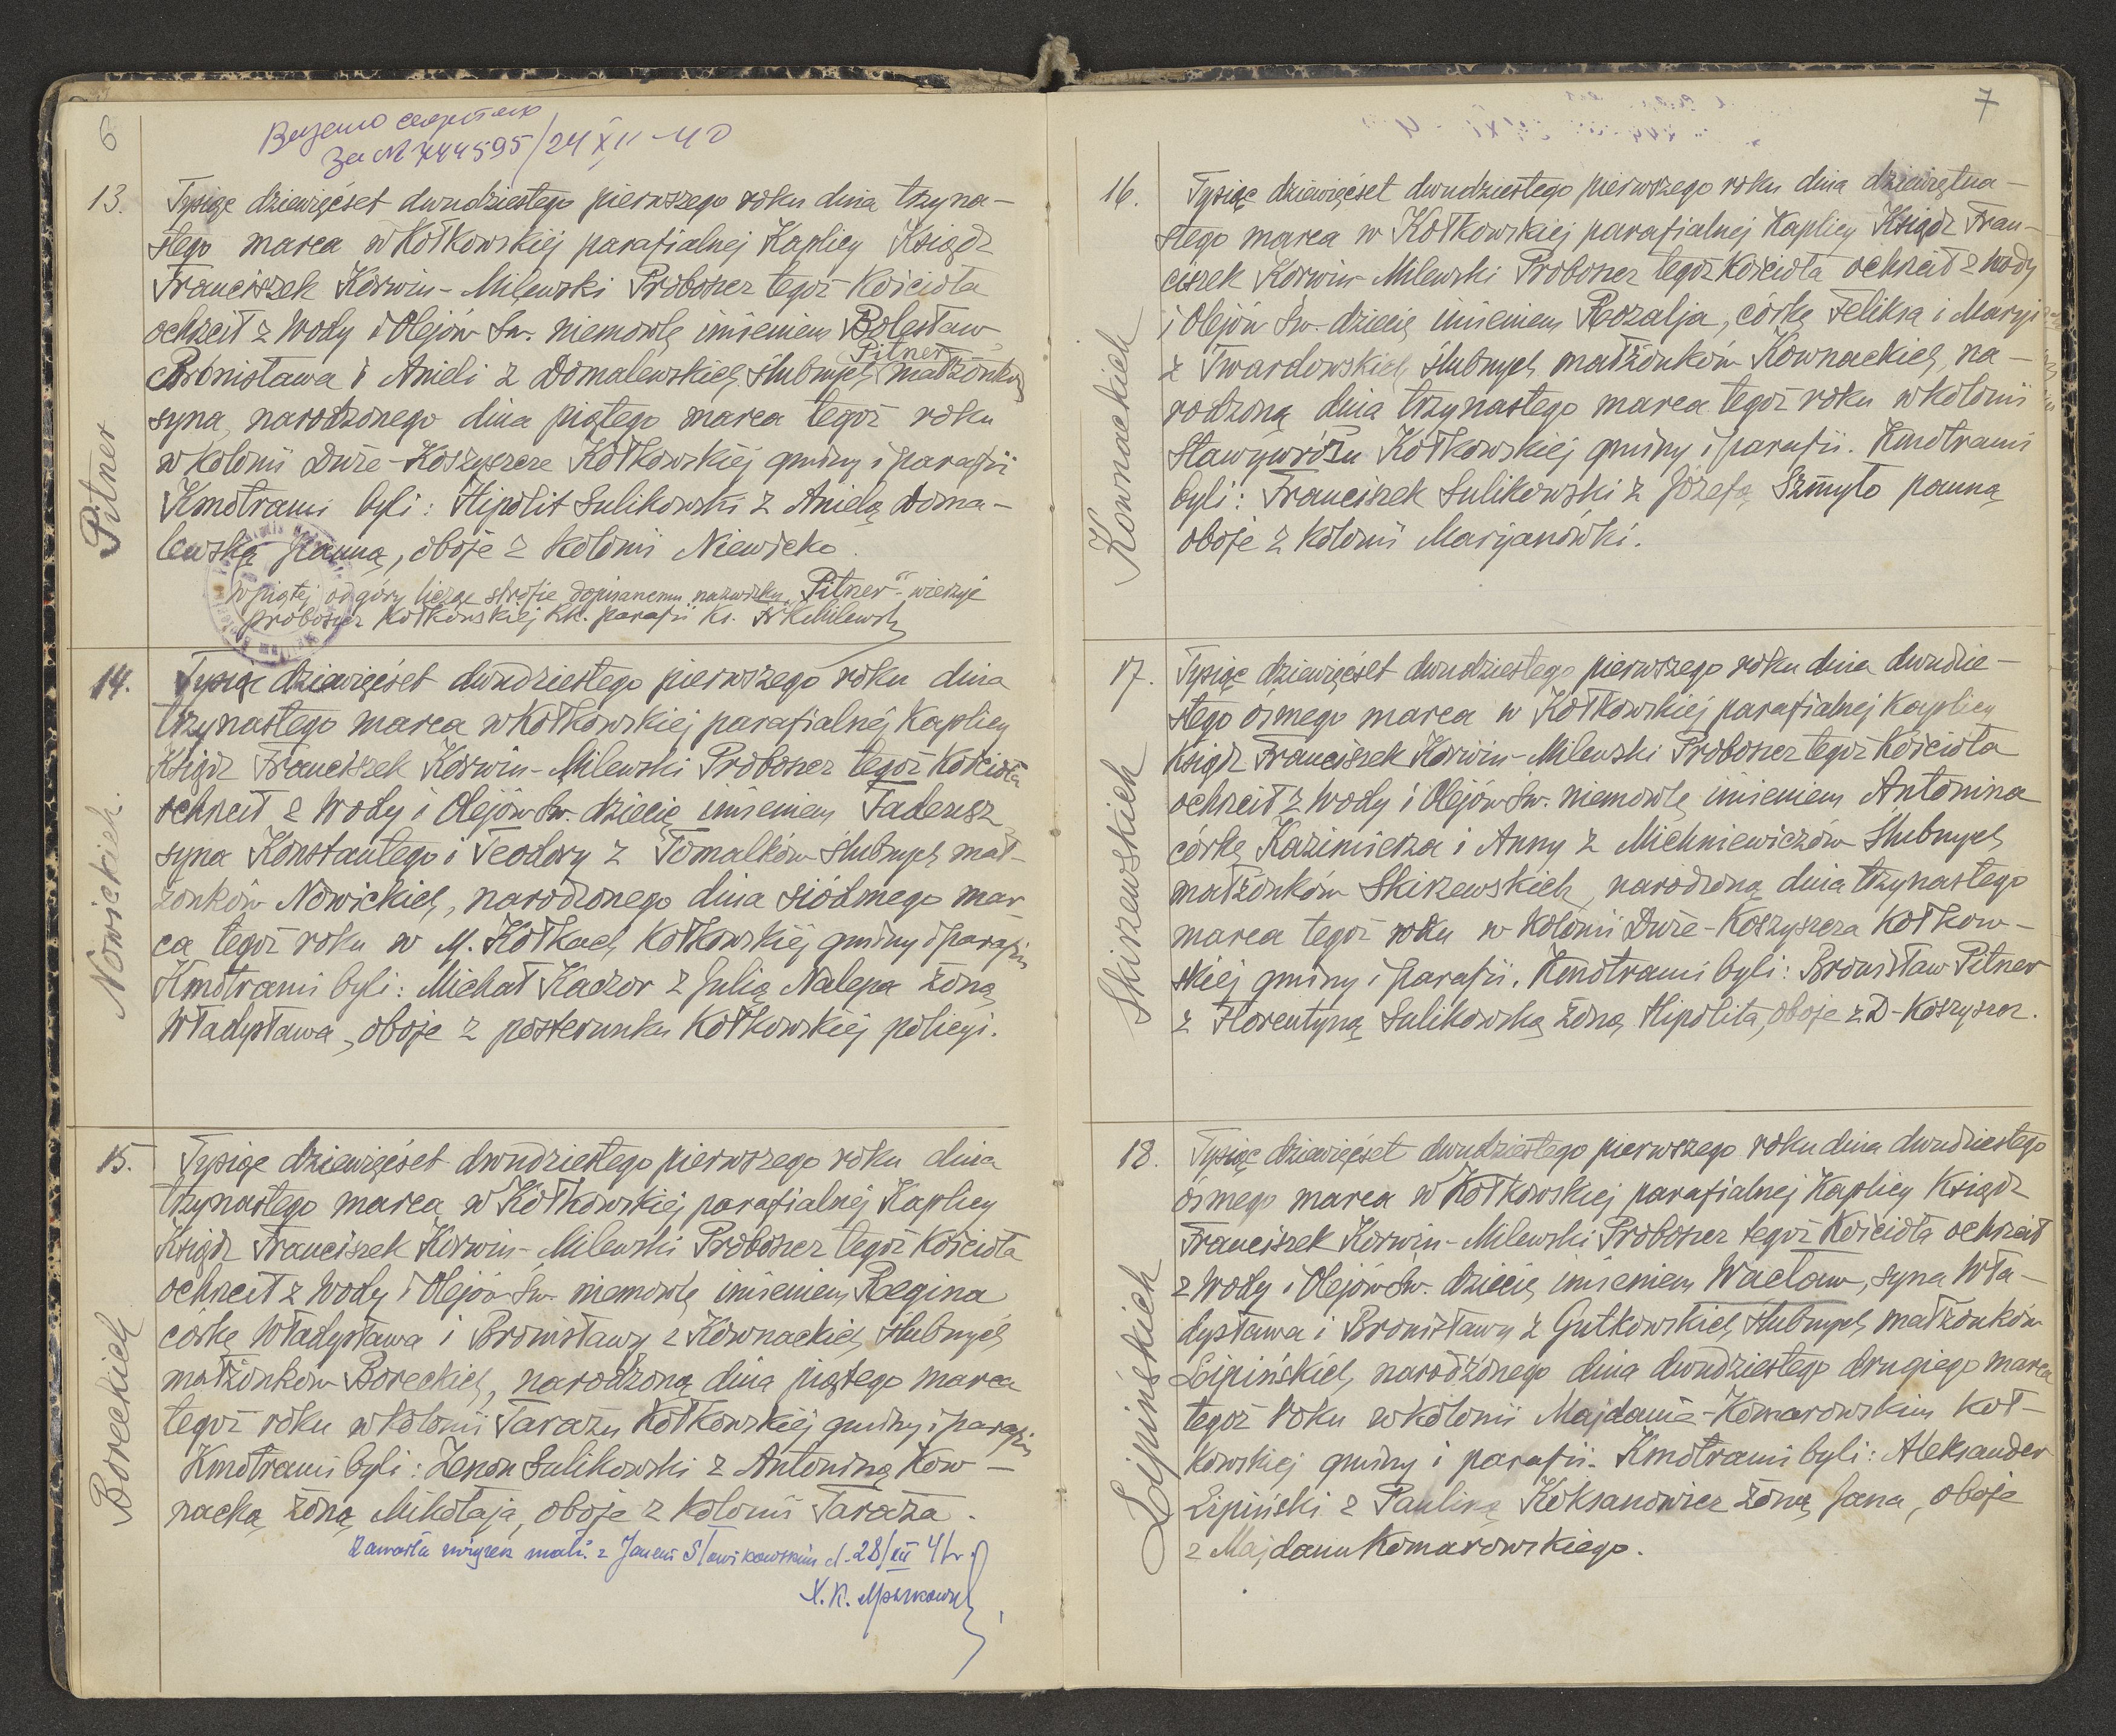 6
за № 744595/24 XII - 40
13.
Pitner
Tysiąc dziewięćset dwudziestego pierwszego roku dnia trzyna-
stego marca w Kołkowskiéj parafialnej Kaplicy Ksiądz
Franciszek Korwin-Milewski Proboszcz tegoż Kościoła
ochrcił z Wody i Olejów Św. niemowlę imieniem Bolesław
Pitner
Bronisława i Anieli z Domalewskich, ślubnych małżonków
syna, narodzonego dnia piątego marca tegoż roku
w kolonii Duże-Koszyszcze Kołkowskiéj gminy i parafii
Kmotrami byli: Hipolit Sulikowski z Anielą Doma-
lewską panną, oboje z kolonii
W piątej od góry licząc strofie dopisanemu nazwisku "Pitner" wierzyć
proboszcz Kołkowskiéj Rk. parafii Ks. FKMilewski
14.
Nowickich.
Tysiąc dziewięćset dwudziestego pierwszego roku dnia
trzynastego marca w Kołkowskiej parafialnéj Kaplicy
Ksiądz Franciszek Korwin-Milewski Proboszcz tegoż Kościoła
ochrcił z Wody i Olejów Św. dziecię imieniem Tadeusz
syna Konstantego i Teodory z Tomalków ślubnych mał-
żonków Nowickich, narodzonego dnia siódmego mar-
ca tegoż roku w M. Kołkach Kołkowskiéj gminy i parafii
Kmotrami byli: Michał Kaczor z Julią Nalepa żoną
Władysława, oboje z posterunku Kołkowskiéj policyi.
15.
Boreckich
Tysiąc dziewięćset dwudziestego pierwszego roku dnia
trzynastego marca w Kołkowskiéj parafialnéj Kaplicy
Ksiądz Franciszek Korwin-Milewski Proboszcz tegoż Kościoła
ochrcił z Wody i Olejów Św. niemowlę imieniem Regina
córkę Władysława i Bronisławy z Kownackich, ślubnych
małżonków Boreckich, narodzoną dnia piątego marca
tegoż roku w kolonii Tarażu Kołkowskiéj gminy i parafii
Kmotrami byli: Zenon Sulikowski z Antoniną Kow-
nacką żoną Mikołaja, oboje z kolonii Taraża.
Zawarła związek małż. z Janem Sławikowskim d. 28/XII 41 r.
7
16.
Kownackich
Tysiąc dziewięćset dwudziestego pierwszego roku dnia dziewiętna-
stego marca w Kołkowskiej parafialnej Kaplicy Ksiądz Fran-
ciszek Korwin-Milewski Proboszcz tegoż Kościoła ochrcił z Wody
i Olejów Św. dziecię imieniem Rozalja, córkę Feliksa i Maryi
z Twardowskich ślubnych małżonków Kownackich, na-
rodzoną dnia trzynastego marca tegoż roku w kolonii
Kołkowskiéj gminy i parafii. Kmotrami
byli: Franciszek Sulikowski z Józefą Szmyto panną
oboje z kolonii Maryanówki.
17.
Skirzewskich
Tysiąc dziewięćset dwudziestego pierwszego roku dnia dwudzie-
stego ósmego marca w Kołkowskiéj parafialnej Kaplicy
Ksiądz Franciszek Korwin-Milewski Proboszcz tegoż Kościoła
ochrcił z Wody i Olejów Św. niemowlę imieniem Antonina
córkę Kazimierza i Anny z Michniewiczów ślubnych
małżonków Skirzewskich, narodzoną dnia trzynastego
marca tegoż roku w Kolonii Duże-Koszyszcza Kołkow-
skiej gminy i parafii. Kmotrami byli: Bronisław Pitner
z Florentyną Sulikowską żoną Hipolita, oboje z D-Koszyszcz.
18.
Lipińskich
Tysiąc dziewięćset dwudziestego pierwszego roku dnia dwudziestego
ósmego marca w Kołkowskiej parafialnej Kaplicy Ksiądz
Franciszek Korwin-Milewski Proboszcz tegoż Kościoła ochrcił
z Wody i Olejów Św. dziecię imieniem Wacław, syna Wła-
dysława i Bronisławy z Gutkowskich, ślubnych małżonków
Lipińskich, narodzonego dnia dwudziestego drugiego marca
tegoż roku w kolonii Majdanie-Komarowskim Koł-
kowskiej gminy i parafii. Kmotrami byli: Aleksander
Lipiński z Pauliną Koksanowicz żoną Jana, oboje
z Majdanu Komarowskiego.